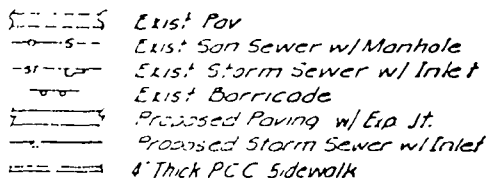 Exist Pav
S Exist San Sewer w/ Manhole
ST Exist Storm Sewer w/ Inlet
Exist Barricade
Proposed Paving w/ Exp Jt.
Proposed Storm Sewer w/ Inlet
4" Thick PCC Sidewalk